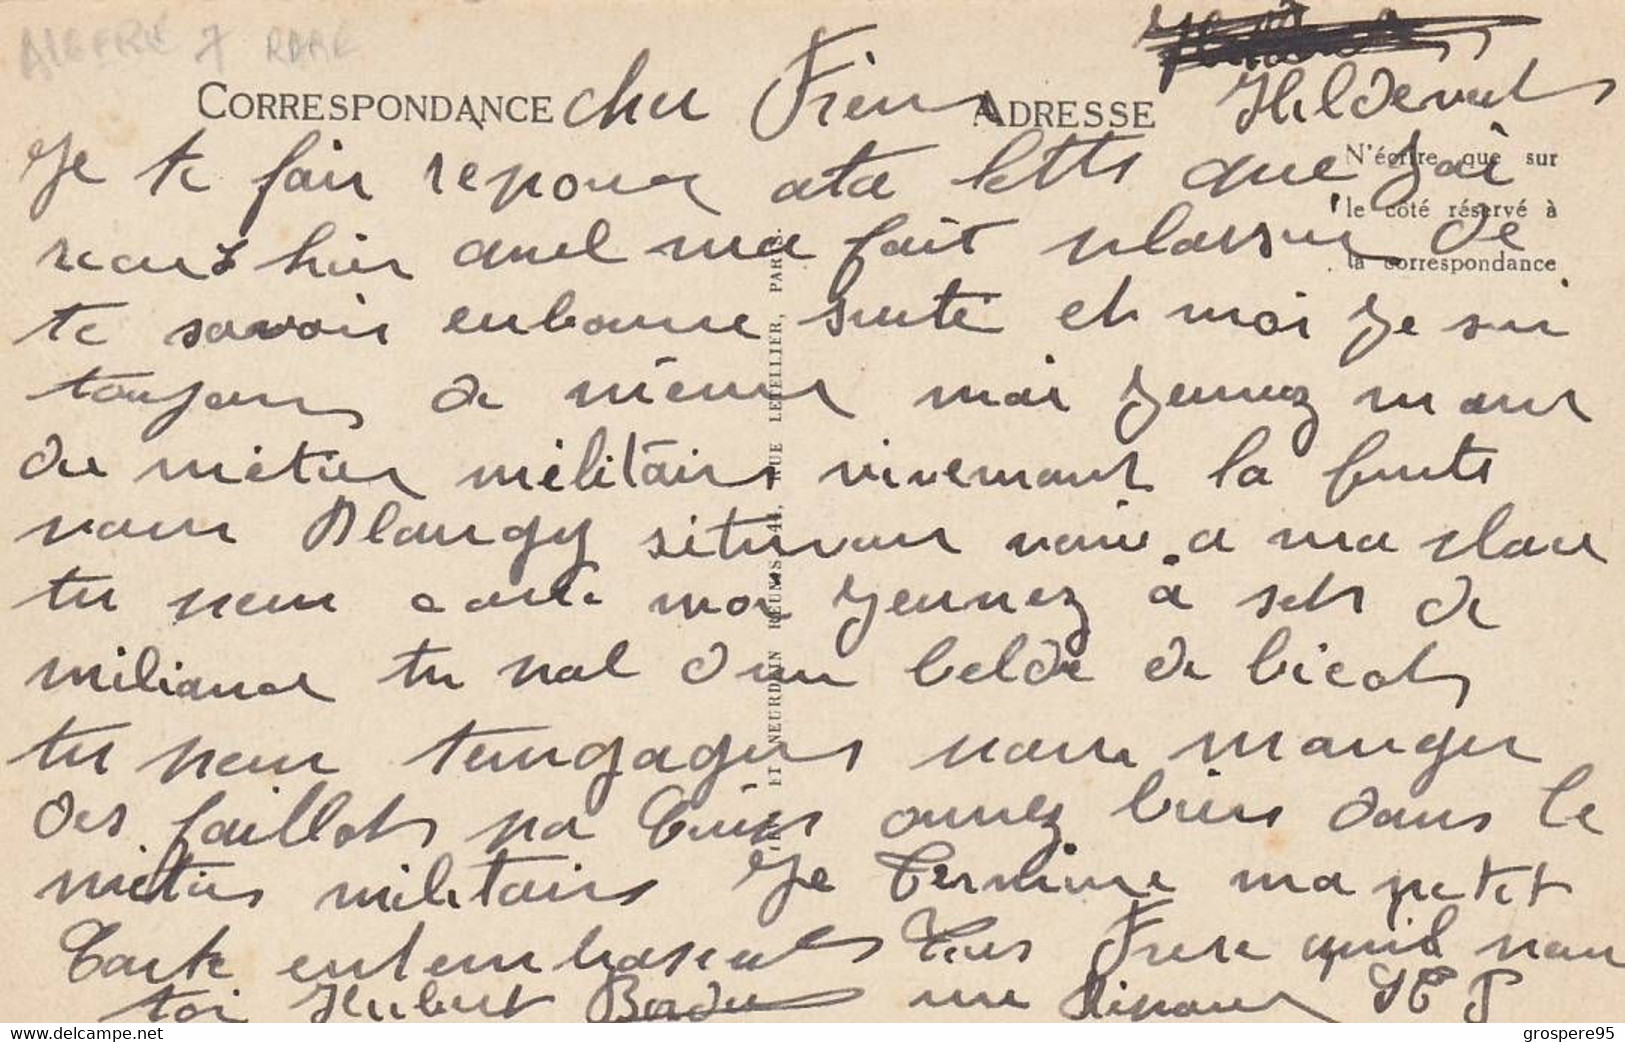 ALGERIE 7 RARE
CORRESPONDANCE cher Frere ADRESSE Hildevert
N'écrire que sur
le côté réservé à
la correspondance
Je te fair reponce ata lettre que Jai
recus hier quel ma fait plaisire de
te savoir enbonne sente et moi Je sui
toujours de mémme mai Jennez mare
du métier militaire vivemant la fuite
pour Blangy situvau venir a ma place
tu peux moi Jennez à sets de
miliance tu pal d'un de bicots
tu peux tengager pour manger
des faillots pa bien dans le
métier militaire Je termine ma petit
carte entembrasent Frere pour
toi Hubert une Reponce
NEURDEIN RÉUNIS, 44, RUE LETELLIER, PARIS.
grospere95